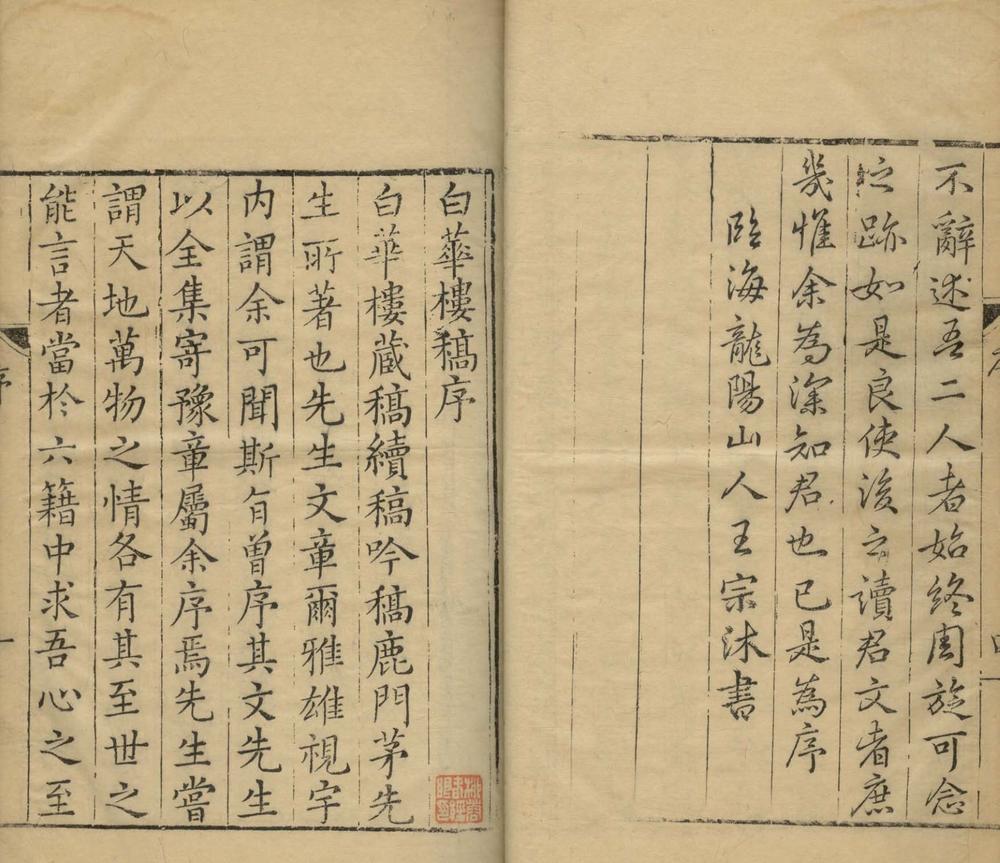 不辭述吾二人者始終周旋可念
之跡如是良使後之讀君文者庶
幾惟余為深知君也已是為序
臨海龍陽山人王宗沐書
白華樓稿序
白華樓藏稿續稿吟稿鹿門茅先
生所著也先生文章爾雅雄視宇
内謂余可聞斯旨曾序其文先生
以全集寄豫章屬余序焉先生嘗
謂天地萬物之情各有其至世之
能言者當於六籍中求吾心之至
序
一